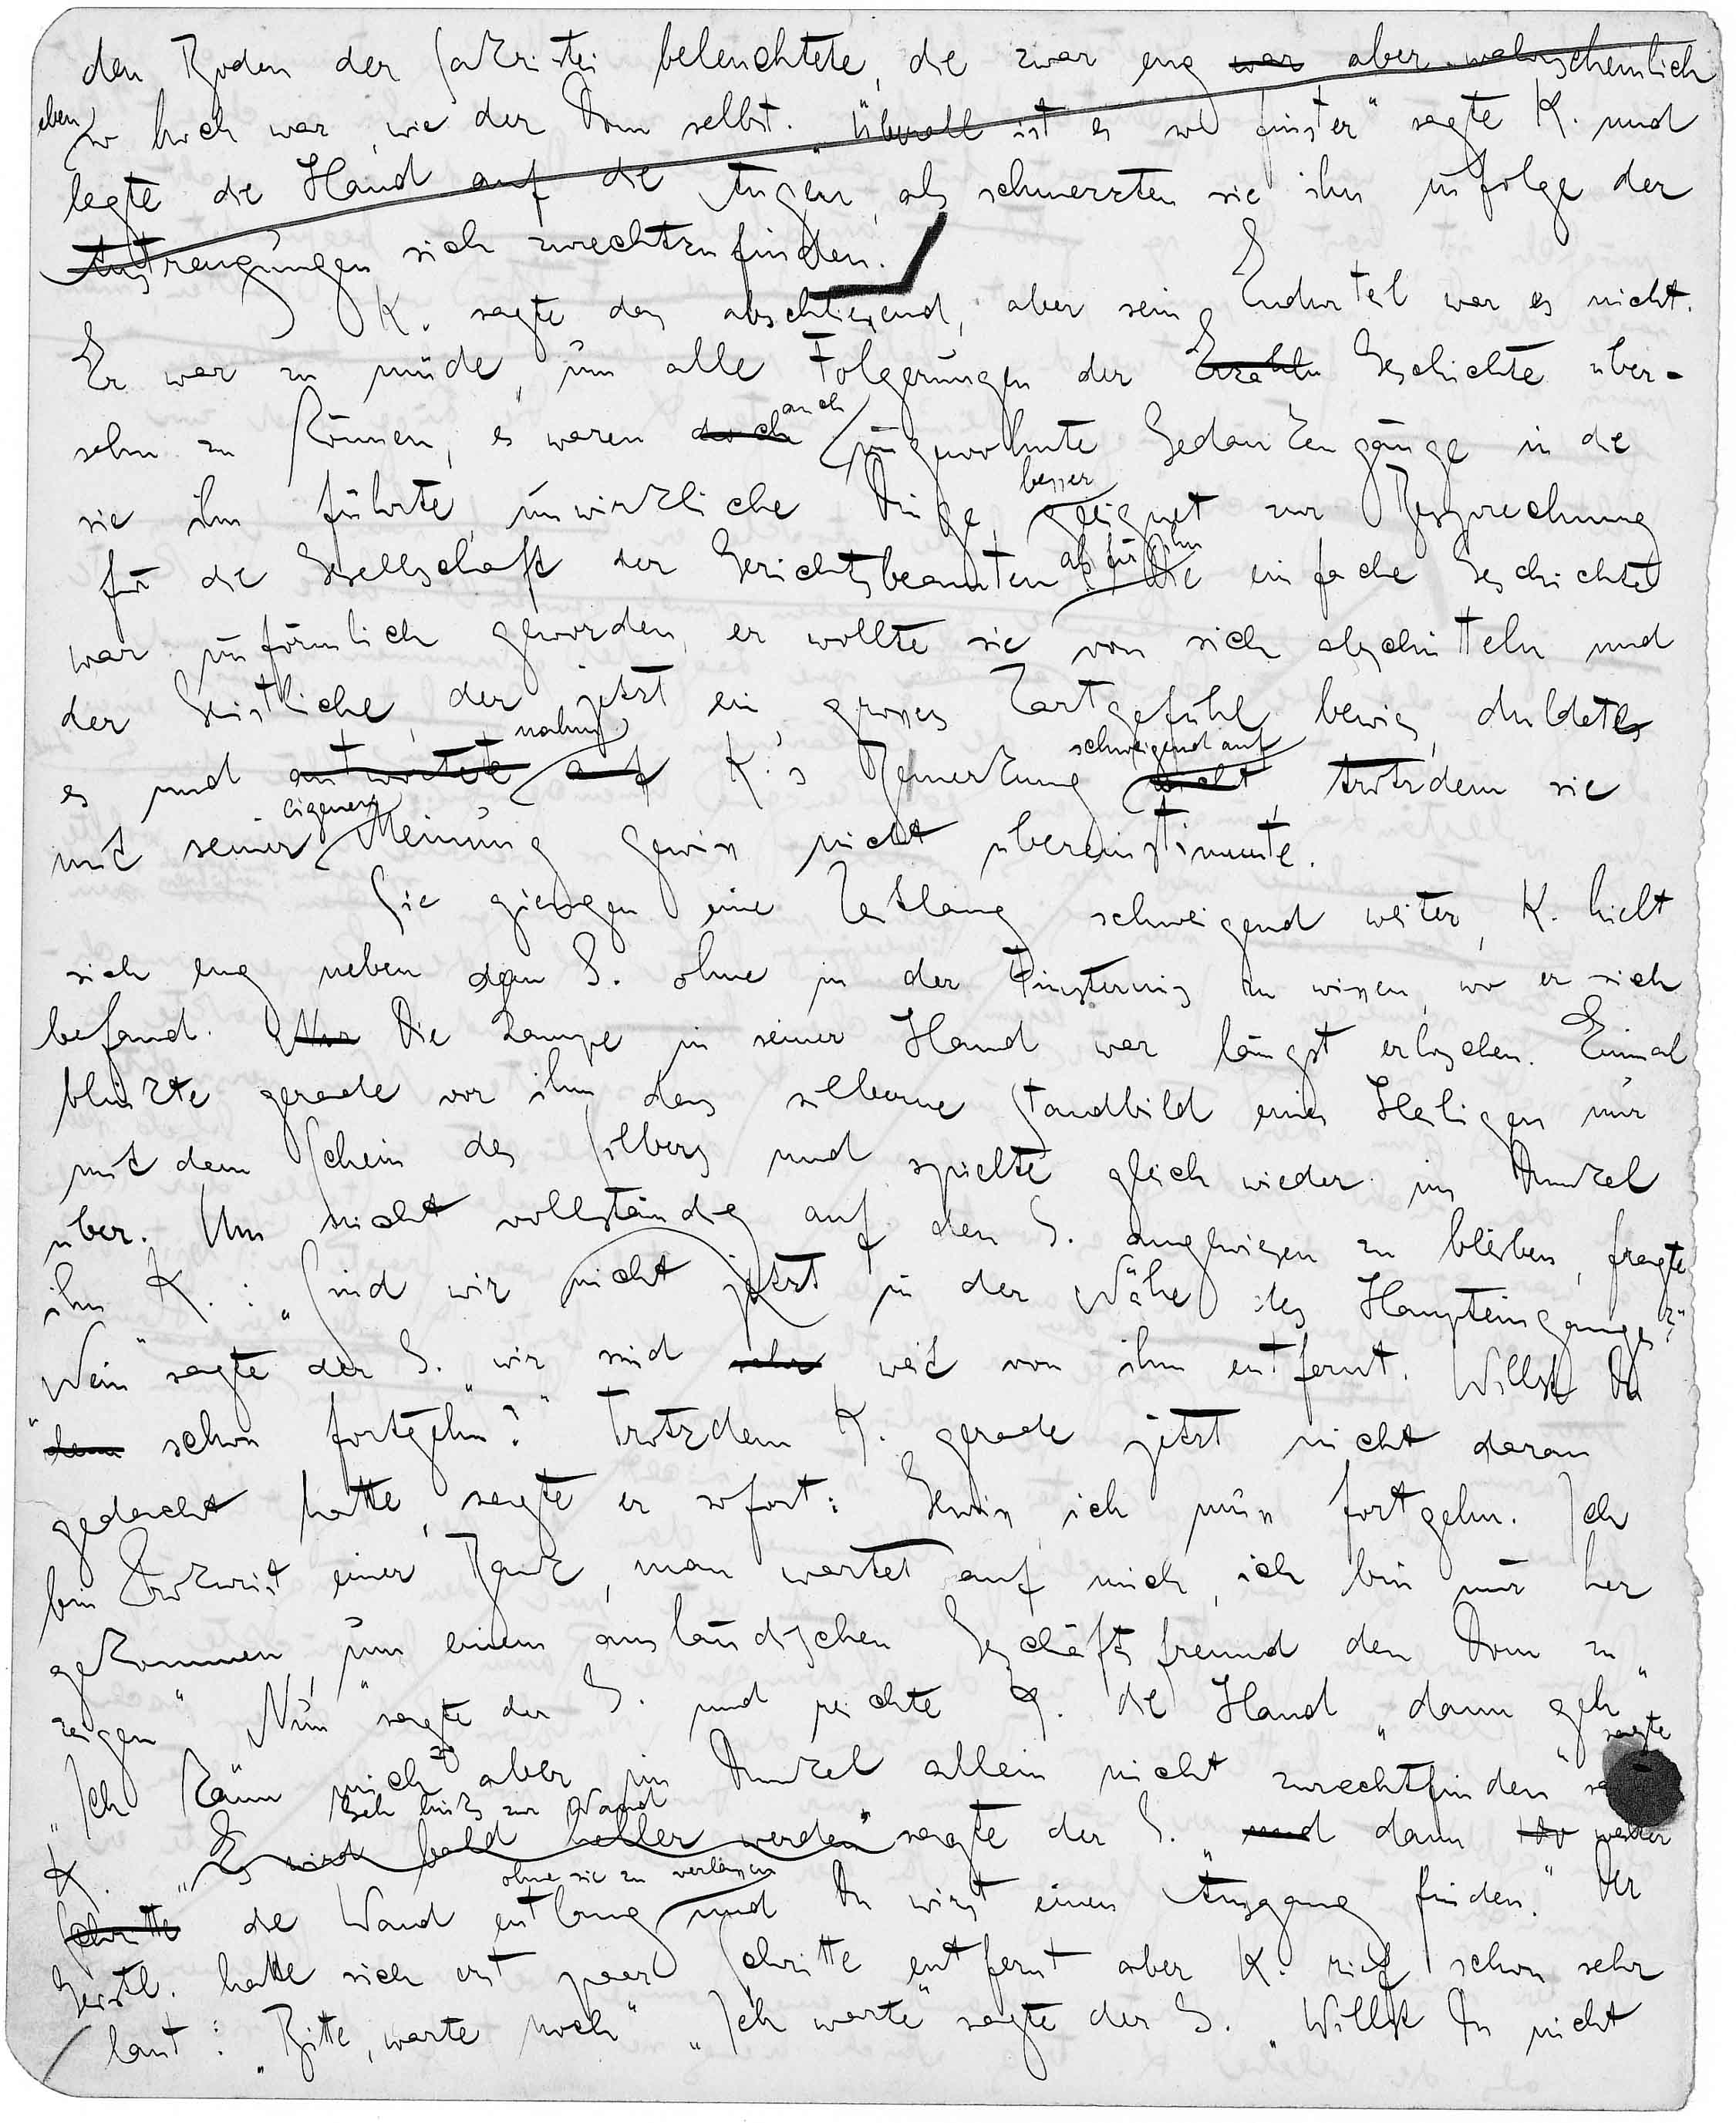 den Boden der Sakristei beleuchtete, die zwar eng war aber wahrscheinlich
eben
so hoch war, wie der Dom selbst. „Überall ist es so finster" sagte K. und
legte die Hand auf die Augen, als schmerzten sie ihn infolge der
Anstrengungen sich zurechtzufinden.
K. sagte das abschliessend, aber sein Endurteil war es nicht.
Er war zu müde, um alle Folgerungen der Erzähln Geschichte über-
auch
sehn zu können, es waren doch ungewohnte Gedankengänge in die
besser
sie ihn führte, unwirkliche Dinge, geeignet zur Besprechung
als für ihn
für die Gesellschaft der Gerichtsbeamten. Die einfache Geschichte
war unförmlich geworden, er wollte sie von sich abschütteln und
der Geistliche, der jetzt ein grosses Zartgefühl bewies, duldete
nahm schweigend auf
es und antwortete auf K.'s Bemerkung nicht trotzdem sie
eigenen
mit seiner Meinung gewiss nicht übereinstimmte.
Sie giengen eine Zeitlang schweigend weiter, K. hielt
sich eng neben dem G. ohne in der Finsternis zu wissen, wo er sich
befand. Nur Die Lampe in seiner Hand war längst erloschen. Einmal
blinkte gerade vor ihm das silberne Standbild eines Heiligen nur
mit dem Schein des Silbers und spielte gleich wieder ins Dunkel
über. Um nicht vollständig auf den G. angewiesen zu bleiben, fragte
ihn K.: „Sind wir nicht jetzt in der Nähe des Haupteinganges?"
„Nein" sagte der G. „wir sind sehr weit von ihm entfernt. Willst Du
denn schon fortgehn?" Trotzdem K. gerade jetzt nicht daran
gedacht hatte, sagte er sofort: Gewiss, ich muss fortgehn. Ich
bin Prokurist einer Bank, man wartet auf mich, ich bin nur her
gekommen, um einem ausländischen Geschäftsfreund den Dom zu
zeigen" „Nun" sagte der G. und reichte K. die Hand „dann geh"
sagte
„Ich kann mich aber im Dunkel allein nicht zurechtfinden"
Geh links zur Wand
K. „Es wird bald heller werden" sagte der G. „und dann so weiter
ohne sie zu verlassen
Schritte die Wand entlang und Du wirst einen Ausgang finden." Der
Geistl. hatte sich erst paar Schritte entfernt aber K. rief schon sehr
laut: „Bitte, warte noch" „Ich warte" sagte der G. „Willst Du nicht